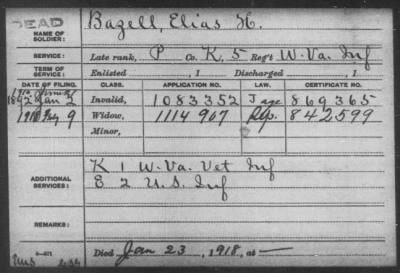 DEAD
NAME OF SOLDIER: Bazell, Elias H.
SERVICE: Late rank, P Co. K, 5 Reg't W. Va. Inf
TERM OF SERVICE: Enlisted , 1 Discharged , 1
DATE OF FILING. CLASS. APPLICATION NO. LAW. CERTIFICATE NO.
Jan 2 Invalid, 1083352 869365
1918 9 Widow, 1114907 842599
Minor,
ADDITIONAL SERVICES: K 1 W. Va. Vet Inf
E 2 U.S. Inf
REMARKS:
Died Jan 23, 1918, at —